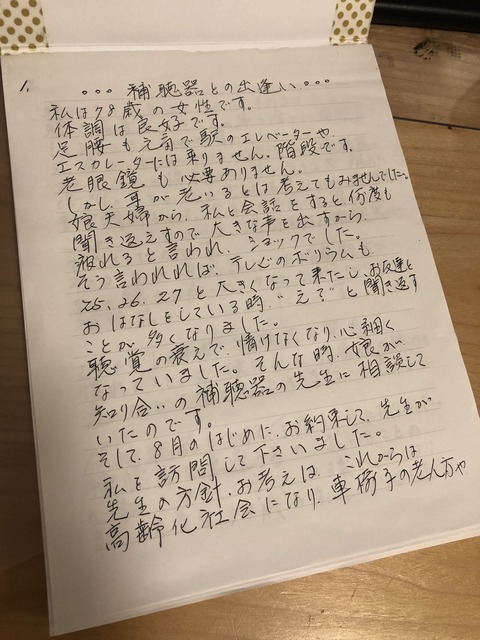 1.
。。。補聴器との出逢い。。。
私は78歳の女性です。
体調は良好です。
足腰も元気で駅のエレベーターや、
エスカレーターには乗りません。階段です。
老眼鏡も必要ありません。
しかし、耳が老いるとは考えてもみませんでした。
娘夫婦から、私と会話をすると何度も
聞き返えすので大きな声を出すから、
疲れると言われ、ショックでした。
そう言われれば、テレビのボリウムも、
25、26、27と大きくなって来たし、お友達と
おはなしをしている時、"え?"と聞き返す
ことが多くなりました。
聴覚の衰えで、情けなくなり、心細く
なっていました。そんな時、娘が
知り合いの補聴器の先生に相談して
いたのです。
そして、8月のはじめに、お約束して、先生が
私を訪問して下さいました。
先生の方針、お考えは、これからは
高齢化社会になり、車椅子の老人方や